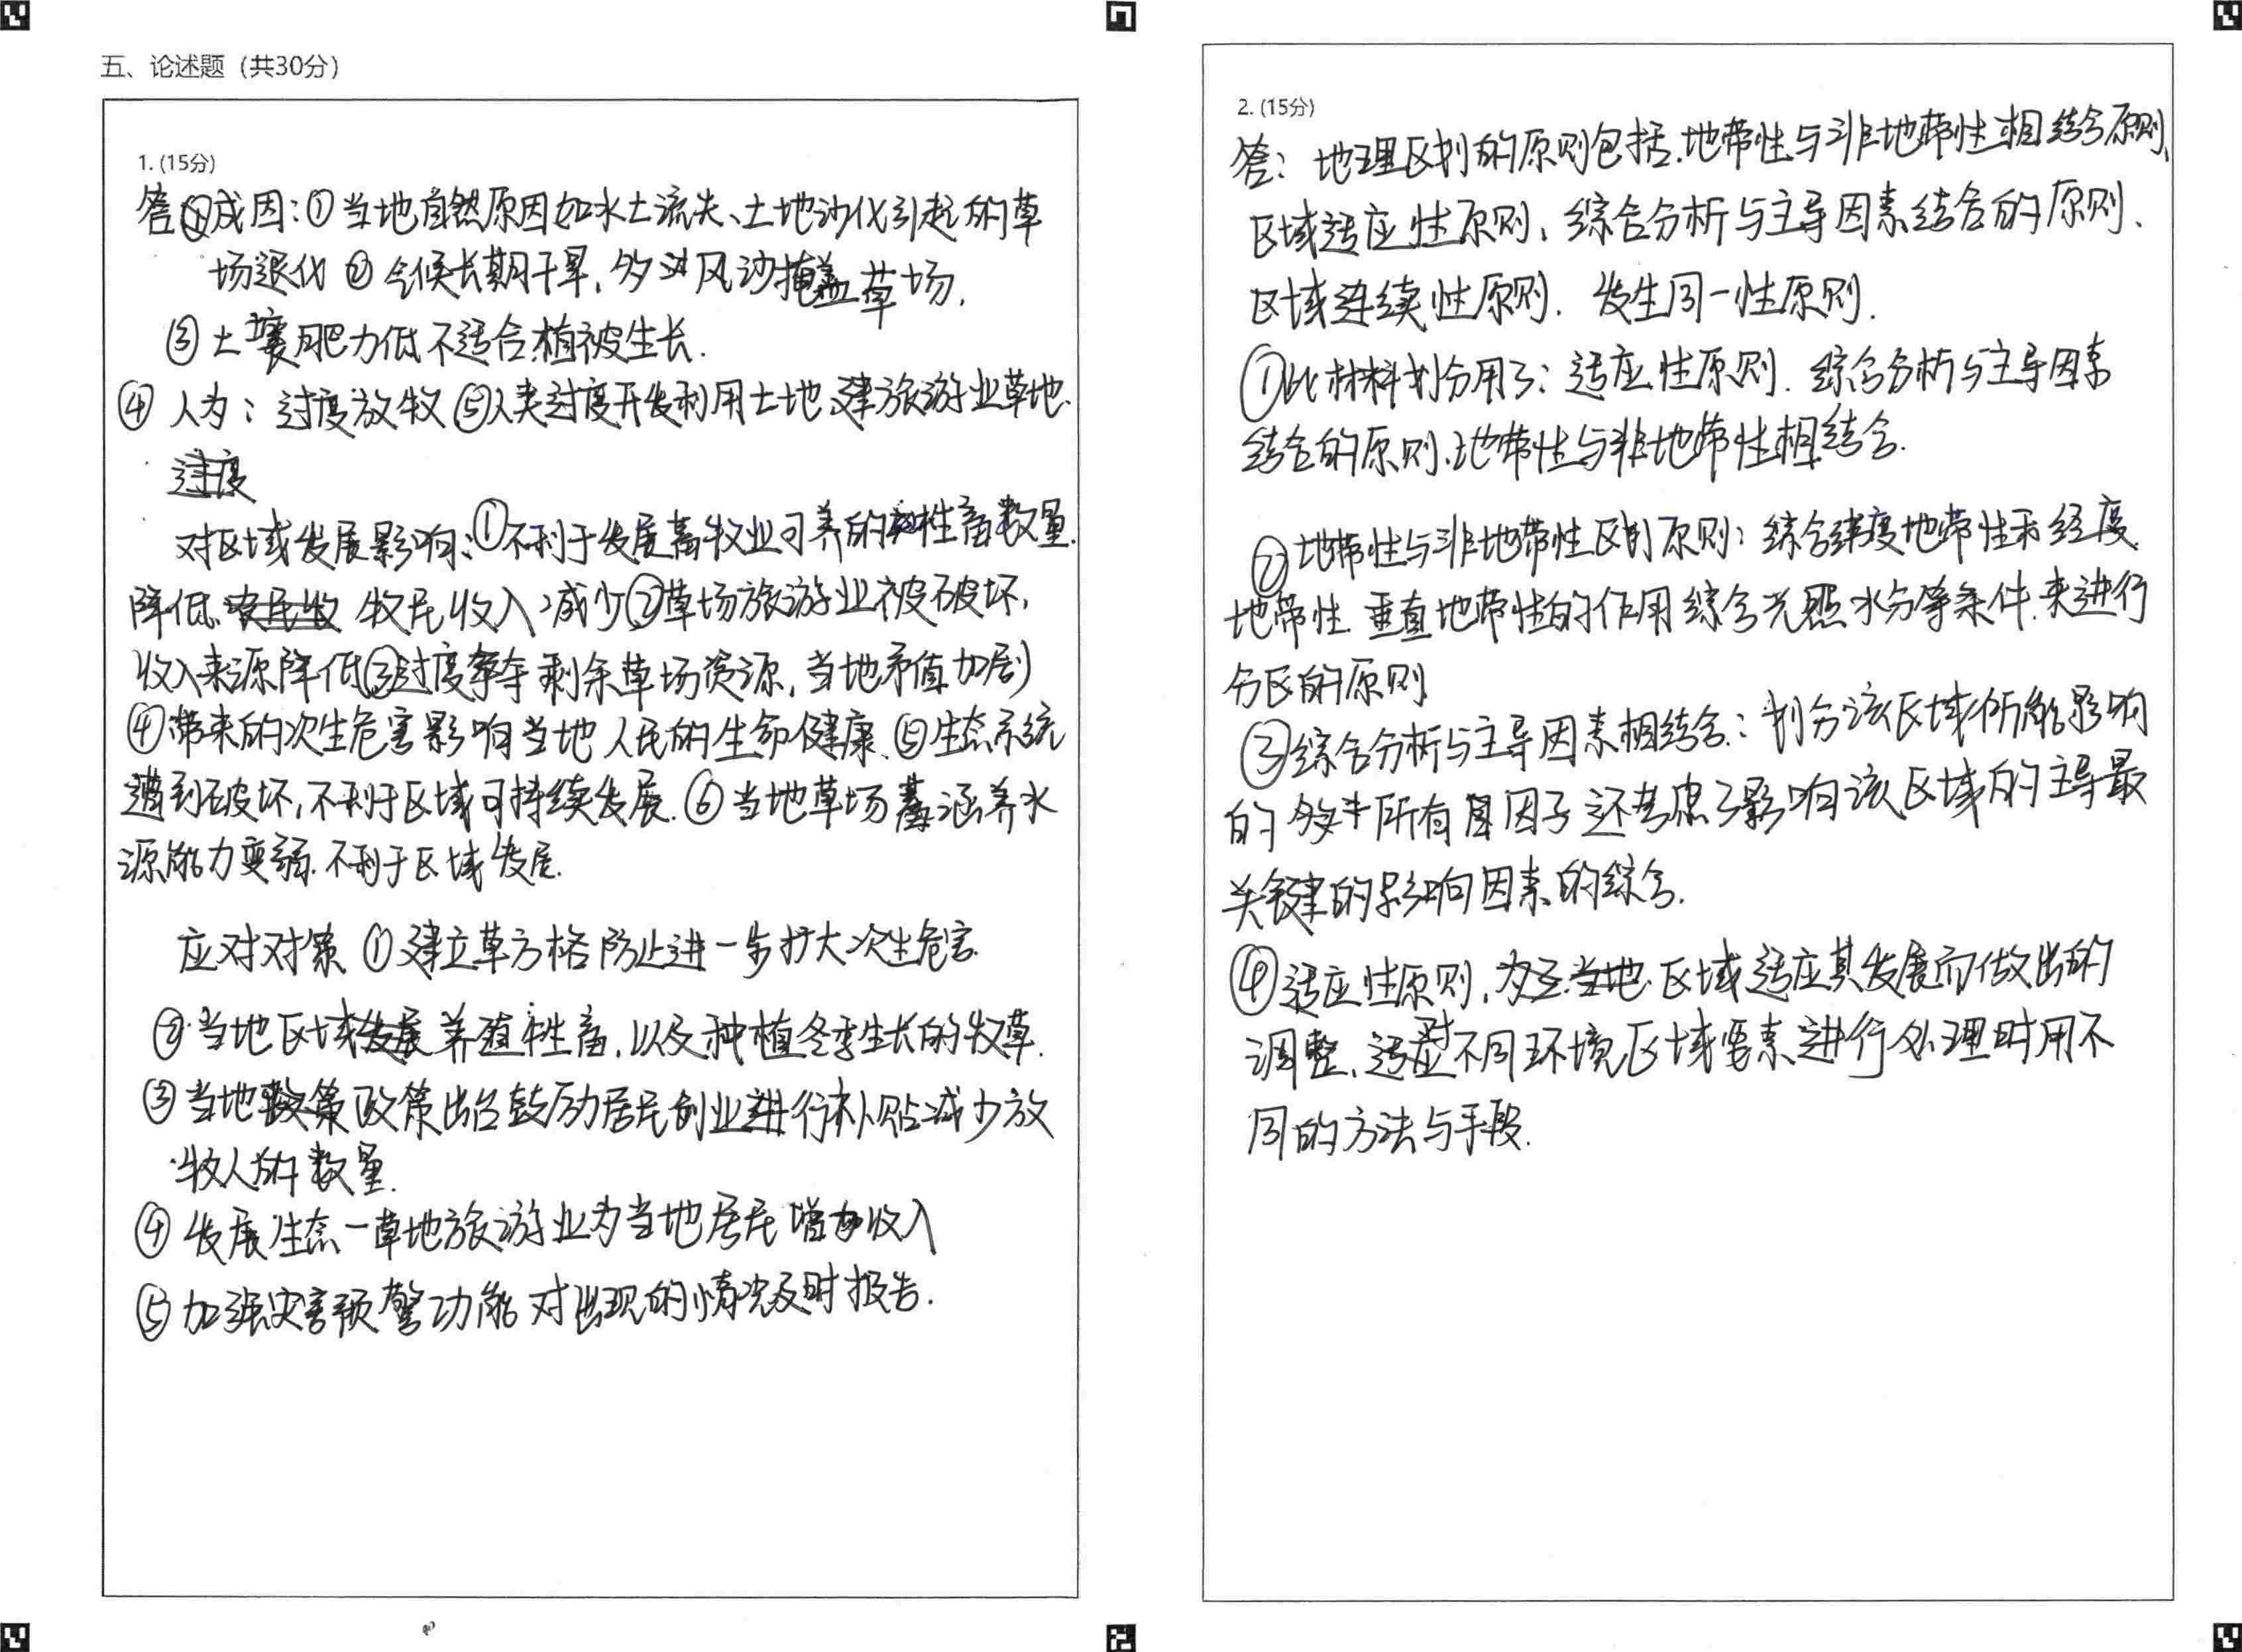 五、论述题（共30分）
1. (15分)
答 成因：①当地自然原因如水土流失、土地沙化引起的草
场退化 ② 气候长期干旱，多 风沙掩盖草场．
③ 土壤肥力低不适合植被生长．
④ 人为：过度放牧 ⑤人类过度开发利用土地、建旅游业草地．
过度
对区域发展影响：①不利于发展畜牧业可养的牲畜数量
降低 牧民收入减少②草场旅游业被破坏，
收入来源降低③过度争夺剩余草场资源，当地矛盾加剧
④带来的次生危害影响当地人民的生命健康．⑤生态系统
遭到破坏，不利于区域可持续发展．⑥当地草场 涵养水
源能力变弱．不利于区域发展．
应对对策 ①建立草方格防止进一步扩大次生危害
② 当地区域发展养殖牲畜，以及种植冬季生长的牧草．
③ 当地政策出台鼓励居民创业进行补贴减少放
牧人的数量．
④ 发展生态－草地旅游业为当地居民增加收入
⑤ 加强灾害预警功能对出现的情况及时报告．
2. (15分)
答：地理区划的原则包括．地带性与非地带性相结合原则、
区域适应性原则，综合分析与主导因素结合的原则、
区域连续性原则．发生同一性原则．
①此材料划分用了：适应性原则．综合分析与主导因素
结合的原则、地带性与非地带性相结合．
②地带性与非地带性区的原则：综合纬度地带性和经度
地带性 垂直地带性的作用综合光照水分等条件．来进行
分区的原则
③综合分析与主导因素相结合：划分该区域所能影响
的 所有因子还考虑了影响该区域的主导最
关键的影响因素的综合．
④适应性原则，为 区域适应其发展而做出的
调整，适应对不同环境区域要素进行处理时用不
同的方法与手段．